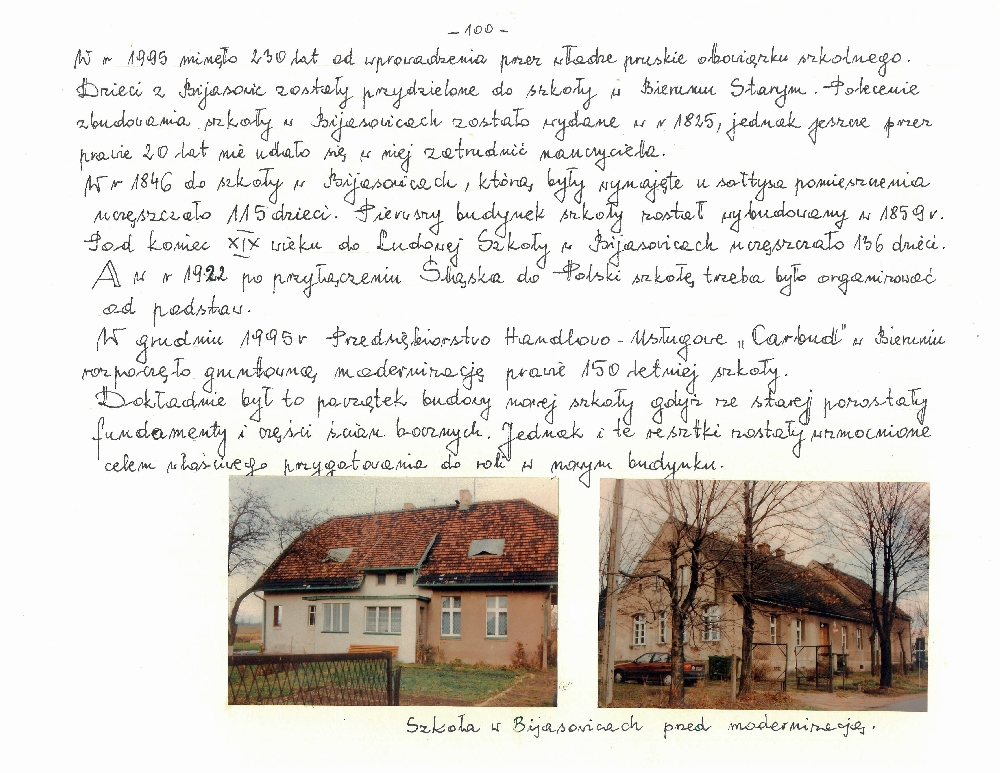 - 100 -
W r 1995 minęło 230 lat od wprowadzenia przez władze pruskie obowiązku szkolnego.
Dzieci z Bijasowic zostały przydzielone do szkoły w Bieruniu Starym. Polecenie
zbudowania szkoły w Bijasowicach zostało wydane w r 1825, jednak jeszcze przez
prawie 20 lat nie udało się w niej zatrudnić nauczyciela.
W r 1846 do szkoły w Bijasowicach, którą były wynajęte u sołtysa pomieszczenia
uczęszczało 115 dzieci. Pierwszy budynek szkoły został wybudowany w 1859 r.
Pod koniec XIX wieku do Ludowej Szkoły w Bijasowicach uczęszczało 136 dzieci.
A w r 1922 po przyłączeniu Śląska do Polski szkołę trzeba było organizować
od podstaw.
W grudniu 1995 r Przedsiębiorstwo Handlowo - Usługowe „Carbud" w Bieruniu
rozpoczęło gruntowną modernizację prawie 150 letniej szkoły.
Dokładnie był to początek budowy nowej szkoły gdyż ze starej pozostały
fundamenty i części ścian bocznych. Jednak i te resztki zostały wzmocnione
celem właściwego przygotowania do roli w nowym budynku.
Szkoła w Bijasowicach przed modernizacją.